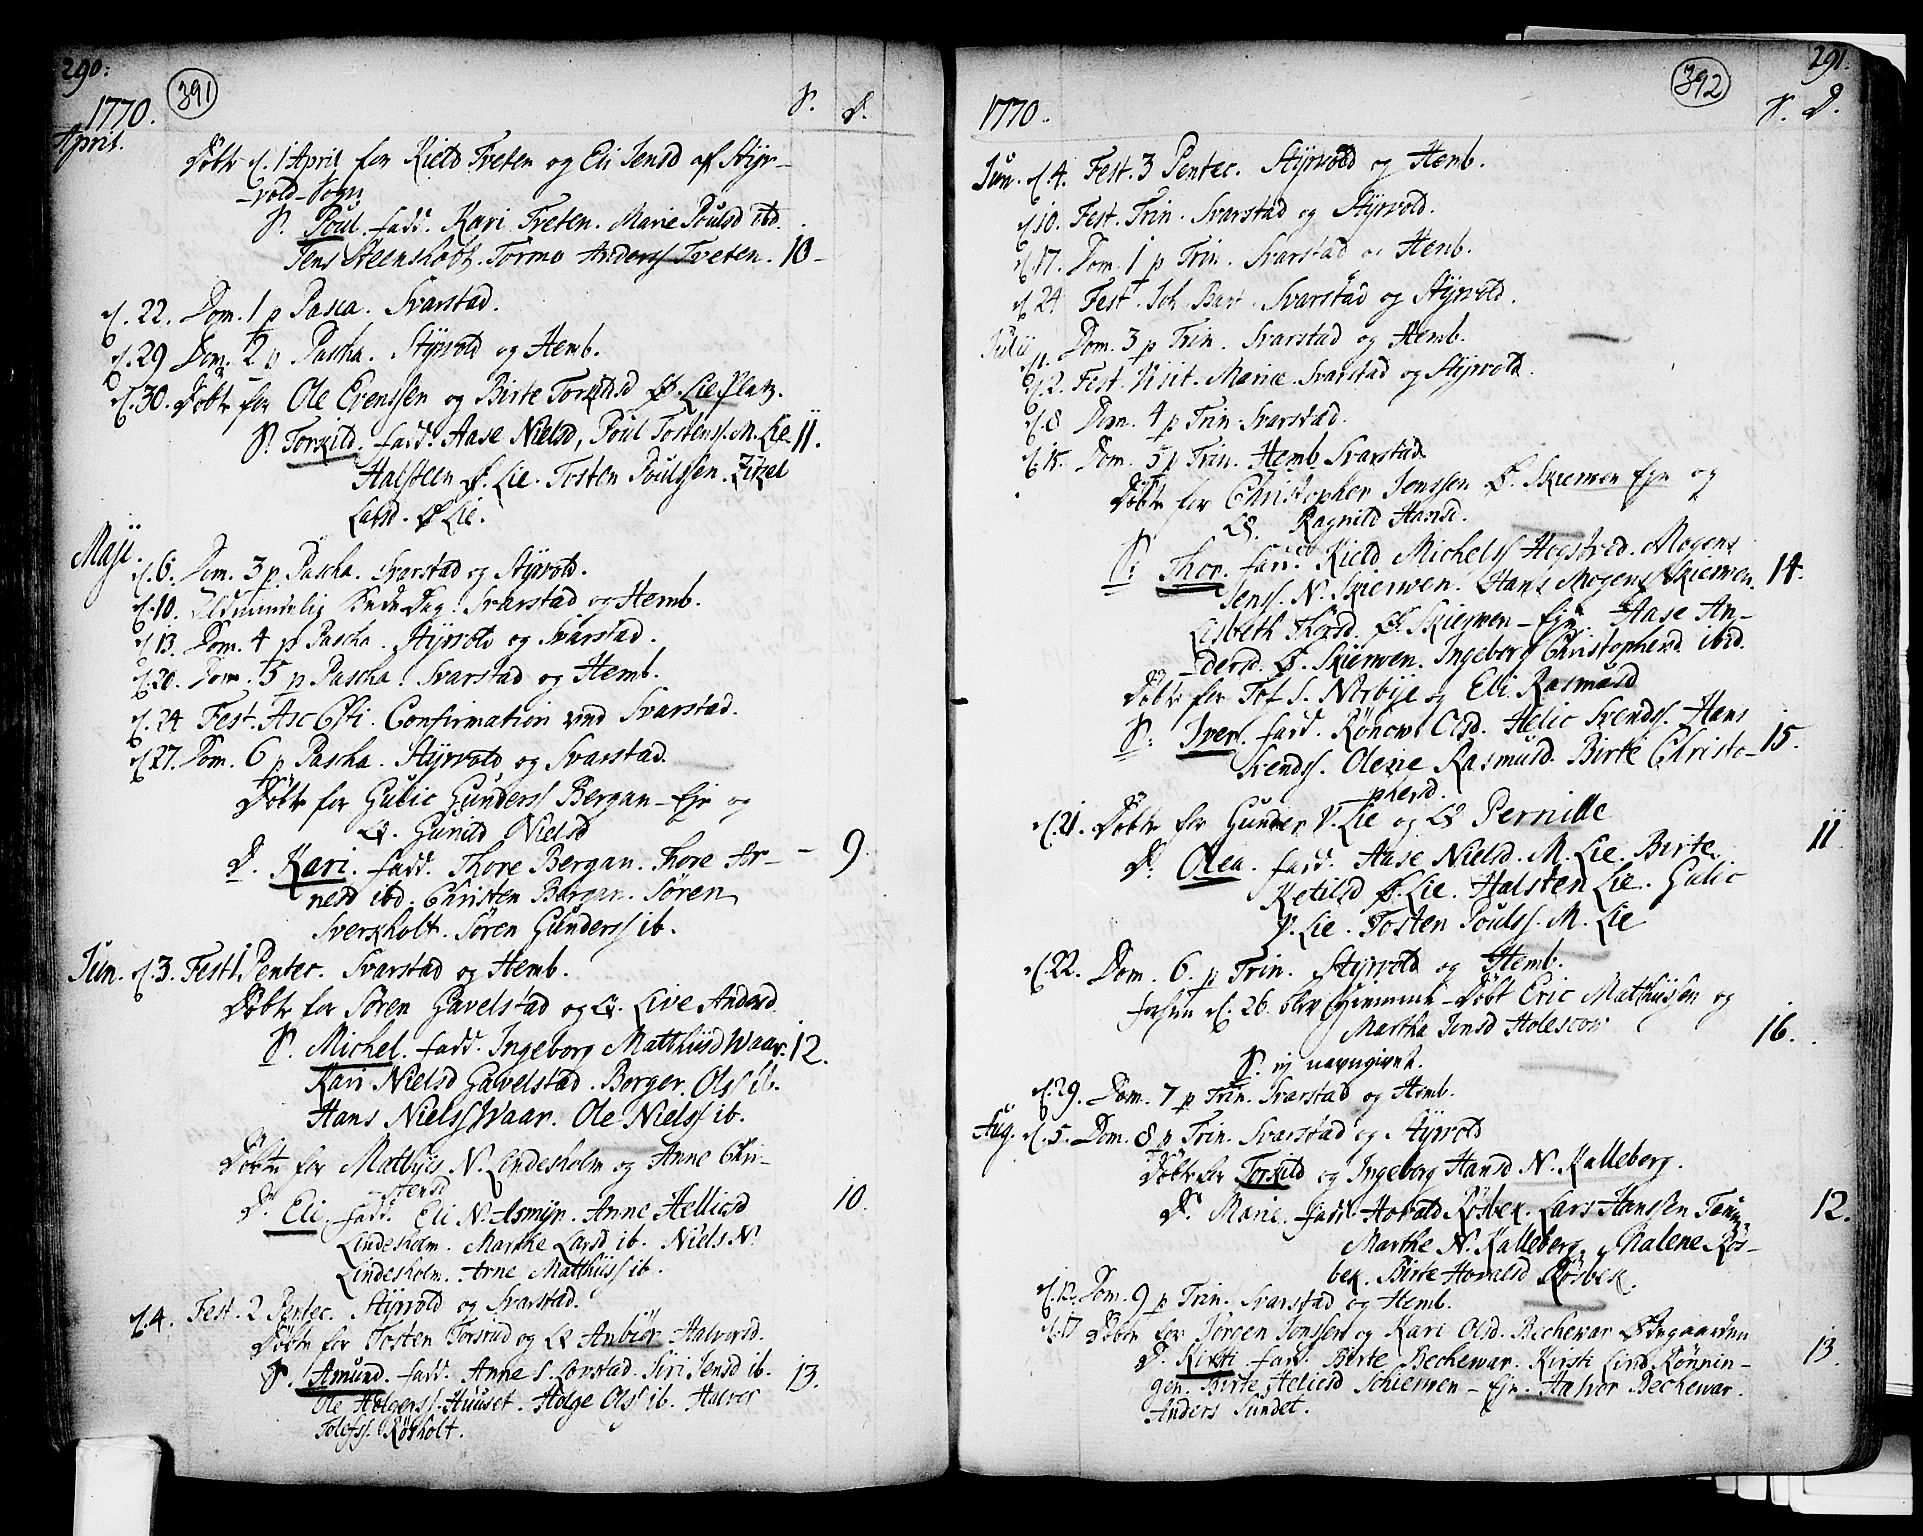 290.
391
1770.
S. D.
April.
Döbte d. 1 April for Kield Tveten og Eli Jensd af Styr-
-vold-Sogn
S. Poul. fadd. Kari Tveten. Marie Poulsd ibd.
Jens Steensholt. Tormo Anderss Tveten. 10-
d. 22. Dom. 1 p Pasca. Svarstad.
d. 29 Dom. 2 p Pascha. Styrvold og Hemb.
d. 30. Döbte for Ole Evenssen og Birte Torkildsd Ø. Lie Platz.
S. Torkild. fadd. Aase Nielsd, Poul Tostenss. M. Lie 11.
Halsteen Ø. Lie. Tosten Poulssen. Zizel
Larsd. Ø Lie.
Maji.
d. 6. Dom. 3 p. Pascha. Svarstad og Styrvold.
d. 10. Allmindelig Bede Dag. Svarstad og Hemb.
d. 13. Dom. 4 p Pascha. Styrvold og Svarstad.
d. 20. Dom. 5 p Pascha. Svarstad og Hemb.
d. 24 Fest. Asc Xsti. Confirmation ved Svarstad.
d. 27. Dom. 6 p Pascha. Styrvold og Svarstad.
Döbte for Gulic Gunderss Bergan-Eje og
Gunild Nielsd
D. Kari. fadd. Thore Bergan. Thore Ar- - 9.
nesd ibd. Christen Bergan. Sören
Sverkholt. Sören Gunderss ib.
Jun. d. 3. Fest 1 Pentec. Svarstad og Hemb.
Döbte for Sören Gavelstad og Live Andersd.
S. Michel. fadd. Ingeborg Matthiisd Waar. 12.
Kari Nielsd Gavelstad. Borger Olss ib.
Hans Nielss Waar. Ole Nielss ib.
Döbte for Mathiis N. Lindesholm og Anne Chri-
-stensd
D. Eli fadd. Eli N. Asmyr. Anne Helliesd 10.
Lindesholm. Marthe Larsd ib. Niels N.
Lindesholm. Arne Matthiss ib.
d. 4. Fest. 2 Pentec. Styrvold og Svarstad.
Döbte for Tosten Torsrud og Anbiör Halvorsd.
S. Amund. fadd. Anne S. Lorstad. Siri Jensd ib. 13.
Ole Holgerss. Huuset. Holge Olss ib. Halvor
Tolefss. Rösholt.
291.
392
1770.
S. D.
Jun. d. 4. Fest. 3 Pentec. Styrvold og Hemb.
d. 10. Fest. Trin. Svarstad og Styrvold.
d. 17. Dom. 1 p Trin. Svarstad og Hemb.
d. 24 Fest. Joh. Bapt. Svarstad og Styrvold.
Julii d. 1. Dom. 3 p Trin. Svarstad og Hemb.
d. 2. Fest. Visit. Mariæ. Svarstad og Styrvold.
d. 8 Dom. 4 p Trin. Svarstad.
d. 15. Dom. 5 p Trin. Hemb Svarstad
Döbte for Christopher Jenssen Ø. Skierven Eje og
Ragnild Hansd.
S. Thor. fadd. Kield Michelss Hogstved. Mogens 14.
Jenss. N. Skierven. Hans Mogenss Skierven.
Lisbeth Thorsd. Ø. Skierven-Eje. Aase An-
-dersd. Ø. Skierven. Ingeborg Christophersd. ibid.
Döbte for Tof S. Norbye og Eli Rasmusd
S. Iver. fadd. Rönow Olsd. Helie Svendss. Hans 15.
Svendss. Olene Rasmusd. Birte Christo-
phersd.
d. 21. Döbte for Gunder V. Lie og Pernille
D. Olea. fadd. Aase Nielsd. M. Lie. Birte 11
Ketilsd Ø. Lie. Halsten Lie. Gulic
V. Lie. Tosten Poulss. M. Lie
d. 22. Dom. 6. p Trin. Styrvold og Hemb.
d. 26. blev Hiemme-Döbt Eric Matthiissen og
Martha Jonsd Holescow 16.
S. ej navngivet.
d. 29. Dom. 7 p Trin. Svarstad og Hemb.
Aug. d. 5. Dom. 8 p Trin. Svarstad og Styrvold
Döbte for Torkild og Ingeborg Hansd N. Kalleberg.
D. Marie. fadd. Hovald Rösbek. Lars Hanssen 12.
Marthe N. Kalleberg. Malene Rös-
bek. Birte Hovalsd Rösbek.
d. 12. Dom. 9 p Trin. Svarstad og Hemb.
d. 17 Döbte for Jörgen Jonssen og Kari Olsd. Bechevar Ødegaarden
D. Kirsti fadd. Birte Bechevar. Kirsti Lind Rönnin- 13.
gen. Birte Heliesd Schierven-Eje. Halvor Bechevar.
Anders Sundet.